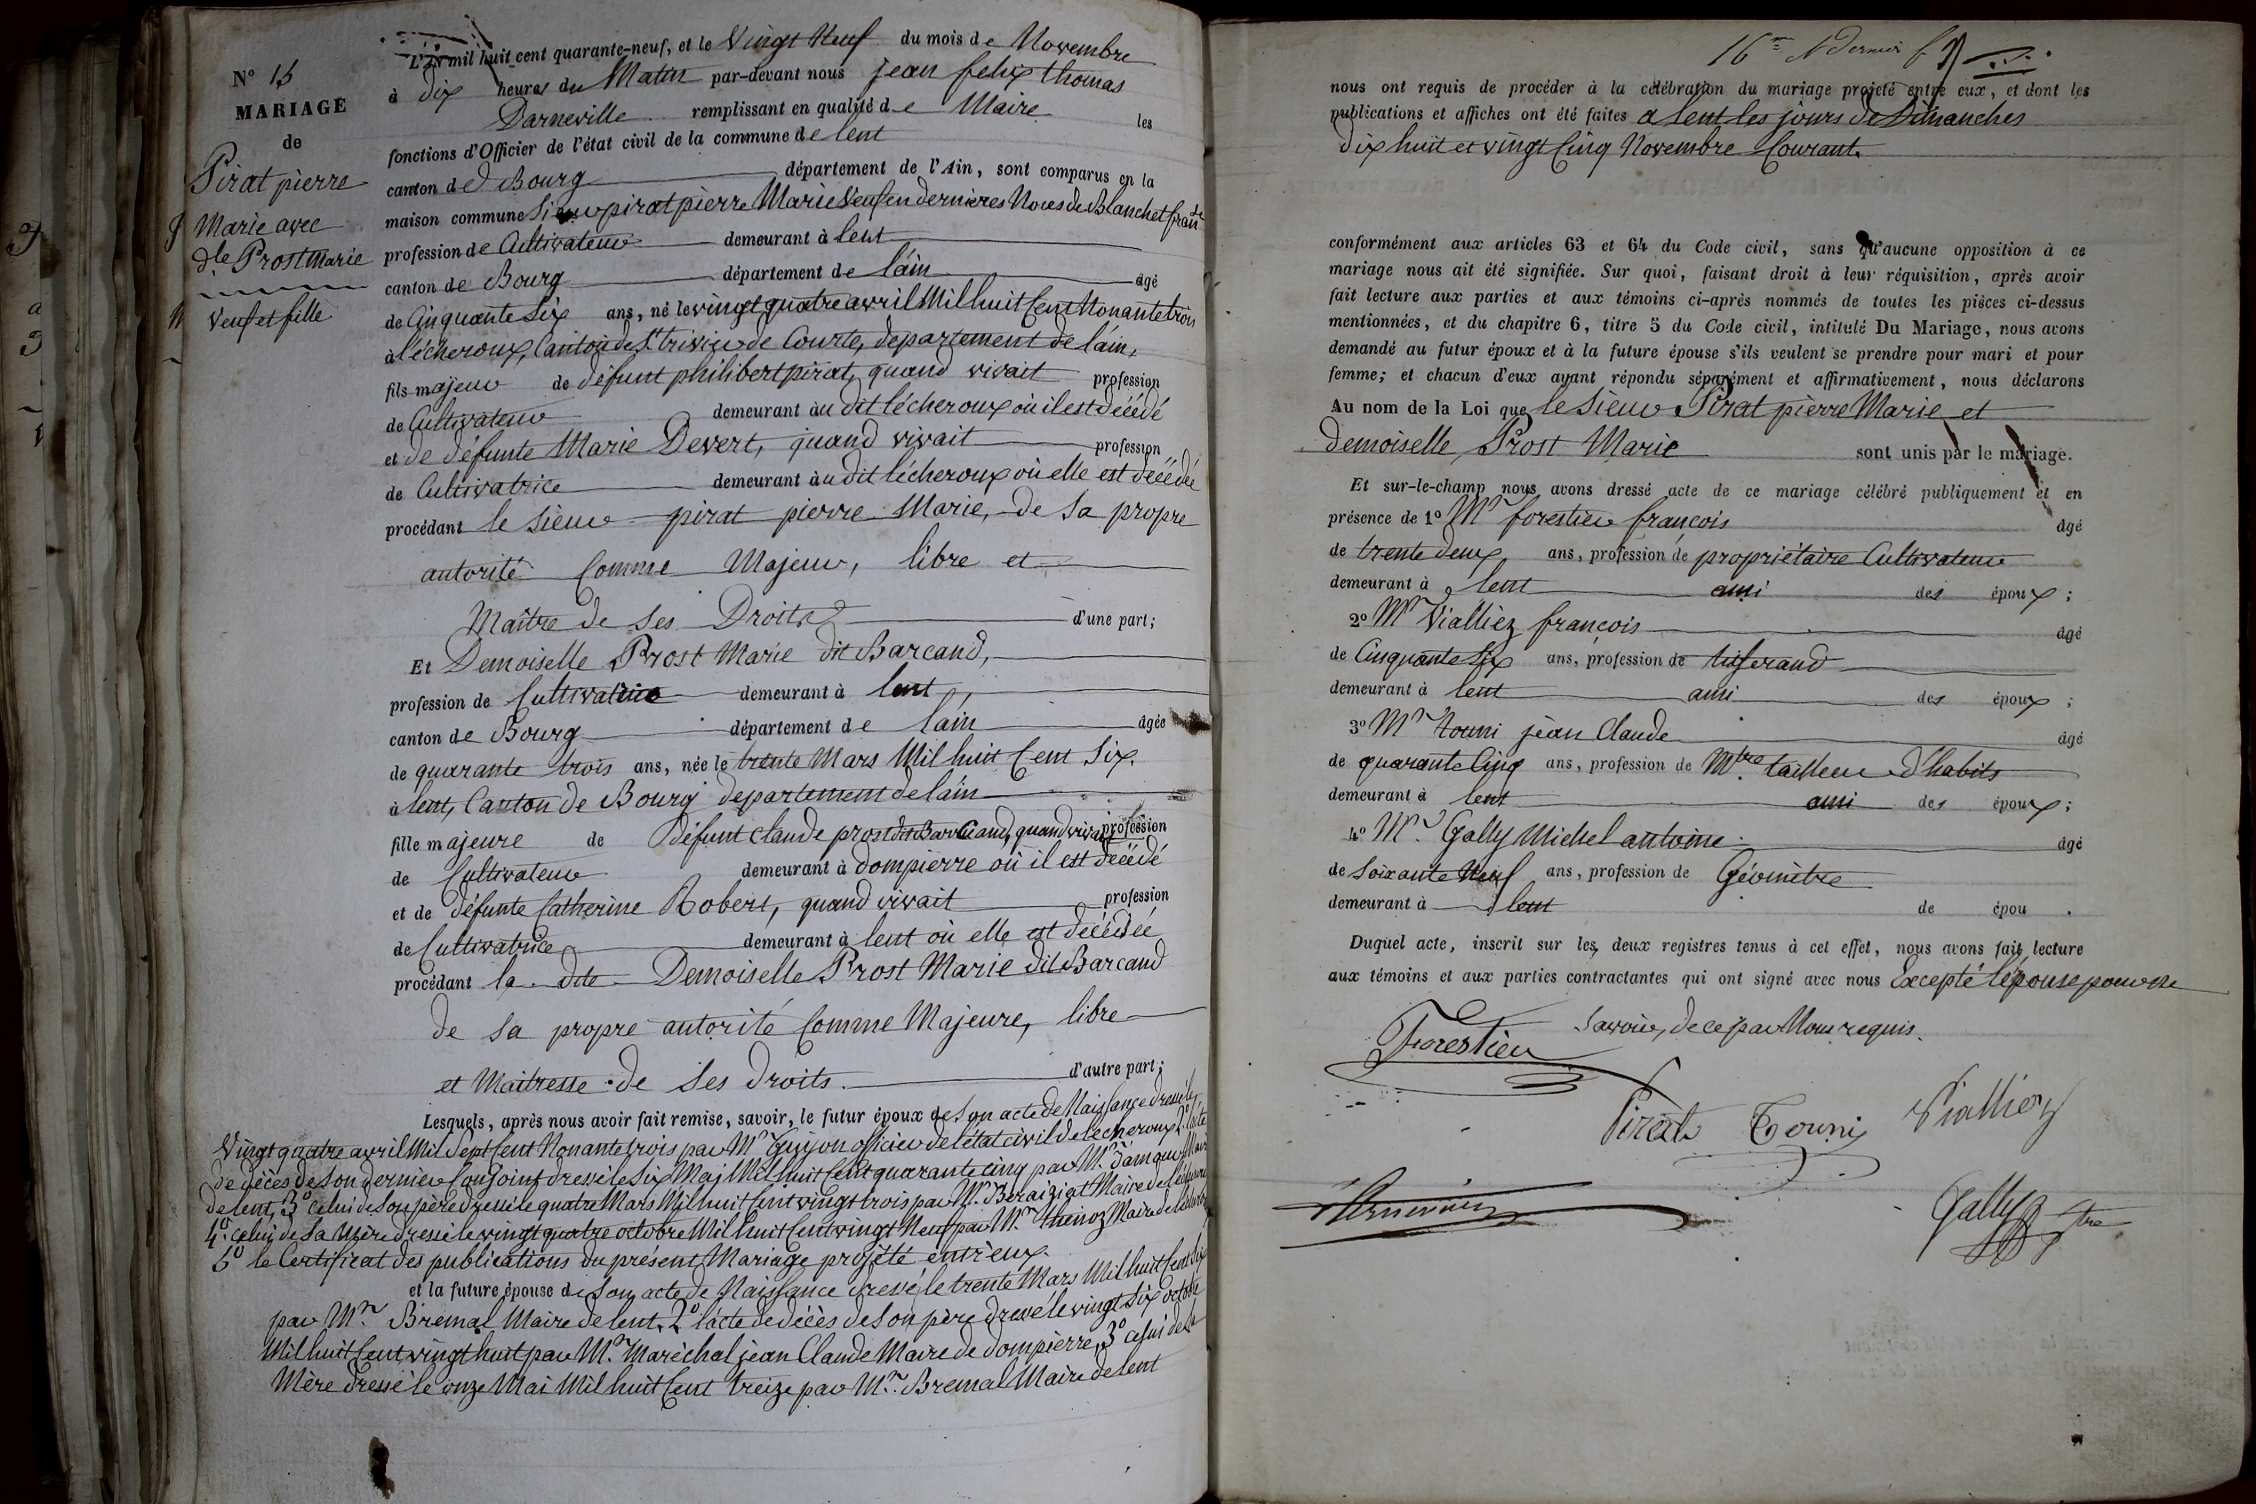 N° 15
MARIAGE
de
Pirat pierre
Marie avec
dlle Prost marie
veuf et fille
L'AN mil huit cent quarante-neuf, et le Vingt Neuf du mois de Novembre
à dix heures du Matin par-devant nous jean felix thomas
Darneville remplissant en qualité de Maire les
fonctions d'Officier de l'état civil de la commune de lent
canton de Bourg département de l'Ain, sont comparus en la
maison commune Sieur pirat pierre Marie Veuf en dernières Noces de Blanchet fran.se
profession de Cultivateur demeurant à lent
canton de Bourg département de l'ain âgé
de Cinquante Six ans, né le vingt quatre avril Mil huit Cent Nonante trois
à lécheroux, Canton de St trivier de Courte, departement de l'ain,
fils majeur de défunt philibert pirat, quand vivait profession
de Cultivateur demeurant au dit lécheroux où il est décédé
et de défunte Marie Devert, quand vivait profession
de Cultivatrice demeurant au dit lécheroux où elle est décédée
procédant le Sieur pirat pierre Marie, de sa propre
autorité Comme Majeur, libre et
Maître de ses Droits d'une part;
Et Demoiselle Prost Marie dit Barcand,
profession de Cultivatrice demeurant à lent,
canton de Bourg département de l'ain âgée
de quarante trois ans, née le trente Mars Mil huit Cent Six.
à lent, Canton de Bourg departement de l'ain
fille majeure de défunt Claude prost dit Barcand, quand vivait profession
de Cultivateur demeurant à dompierre où il est décédé
et de défunte Catherine Robert, quand vivait profession
de Cultivatrice demeurant à lent où elle est décédée
procédant la dite Demoiselle Prost Marie dit Barcand
de sa propre autorité Comme Majeure, libre
et Maitresse de ses droits. d'autre part;
Lesquels, après nous avoir fait remise, savoir, le futur époux de son acte de Naissance dressé le
Vingt quatre avril Mil Sept Cent Nonante trois par Mr Guyon officier de l'état civil de lécheroux 2° l'acte
de décès de Son dernier Conjoint dressé le Six Mai Mil huit Cent quarante cinq par Mr. Maire
de lent, 3° celui de Son père dressé le quatre Mars Mil huit Cent vingt trois par Mr. Maire de lécheroux
4° celui de Sa Mère dressé le vingt quatre octobre Mil huit Cent vingt Neuf par Mr. thenoz Maire de lécheroux
5° le Certificat des publications du présent Mariage projété entr'eux.
et la future épouse de son acte de Naissance dressé le trente Mars Mil huit Cent Six
par Mr. Bremal Maire de lent. 2° l'acte de décès de Son père dressé le vingt Six octobre
Mil huit Cent vingt huit par Mr. Maréchal jean Claude Maire de dompierre, 3° celui de sa
Mère dressé le onze Mai Mil huit Cent treize par Mr. Bremal Maire de lent
16me N dernier f
nous ont requis de procéder à la célébration du mariage projeté entre eux, et dont les
publications et affiches ont été faites a lent les jours de Dimanches
dix huit et vingt Cinq Novembre Courant.
conformément aux articles 63 et 64 du Code civil, sans qu'aucune opposition à ce
mariage nous ait été signifiée. Sur quoi, faisant droit à leur réquisition, après avoir
fait lecture aux parties et aux témoins ci-après nommés de toutes les pièces ci-dessus
mentionnées, et du chapitre 6, titre 5 du Code civil, intitulé Du Mariage, nous avons
demandé au futur époux et à la future épouse s'ils veulent se prendre pour mari et pour
femme; et chacun d'eux ayant répondu séparément et affirmativement, nous déclarons
Au nom de la Loi que le Sieur Pirat pierre Marie et
demoiselle Prost Marie sont unis par le mariage.
Et sur-le-champ nous avons dressé acte de ce mariage célébré publiquement et en
présence de 1° Mr forestier françois âgé
de trente deux ans, profession de propriétaire Cultivateur
demeurant à lent ami des époux;
2° Mr Vialliez françois âgé
de Cinquante Six ans, profession de tisserand
demeurant à lent ami des époux;
3° Mr touni jean Claude âgé
de quarante Cinq ans, profession de Mtre tailleur d'habits
demeurant à lent ami des époux;
4° Mr. Gally Michel antoine âgé
de Soixante Neuf ans, profession de Géomètre
demeurant à lent de épou .
Duquel acte, inscrit sur les deux registres tenus à cet effet, nous avons fait lecture
aux témoins et aux parties contractantes qui ont signé avec nous Excepté l'épouse pour ne
savoir, de ce par Nous requis.
Forestier
Pirat Touni Vialliez
Gally